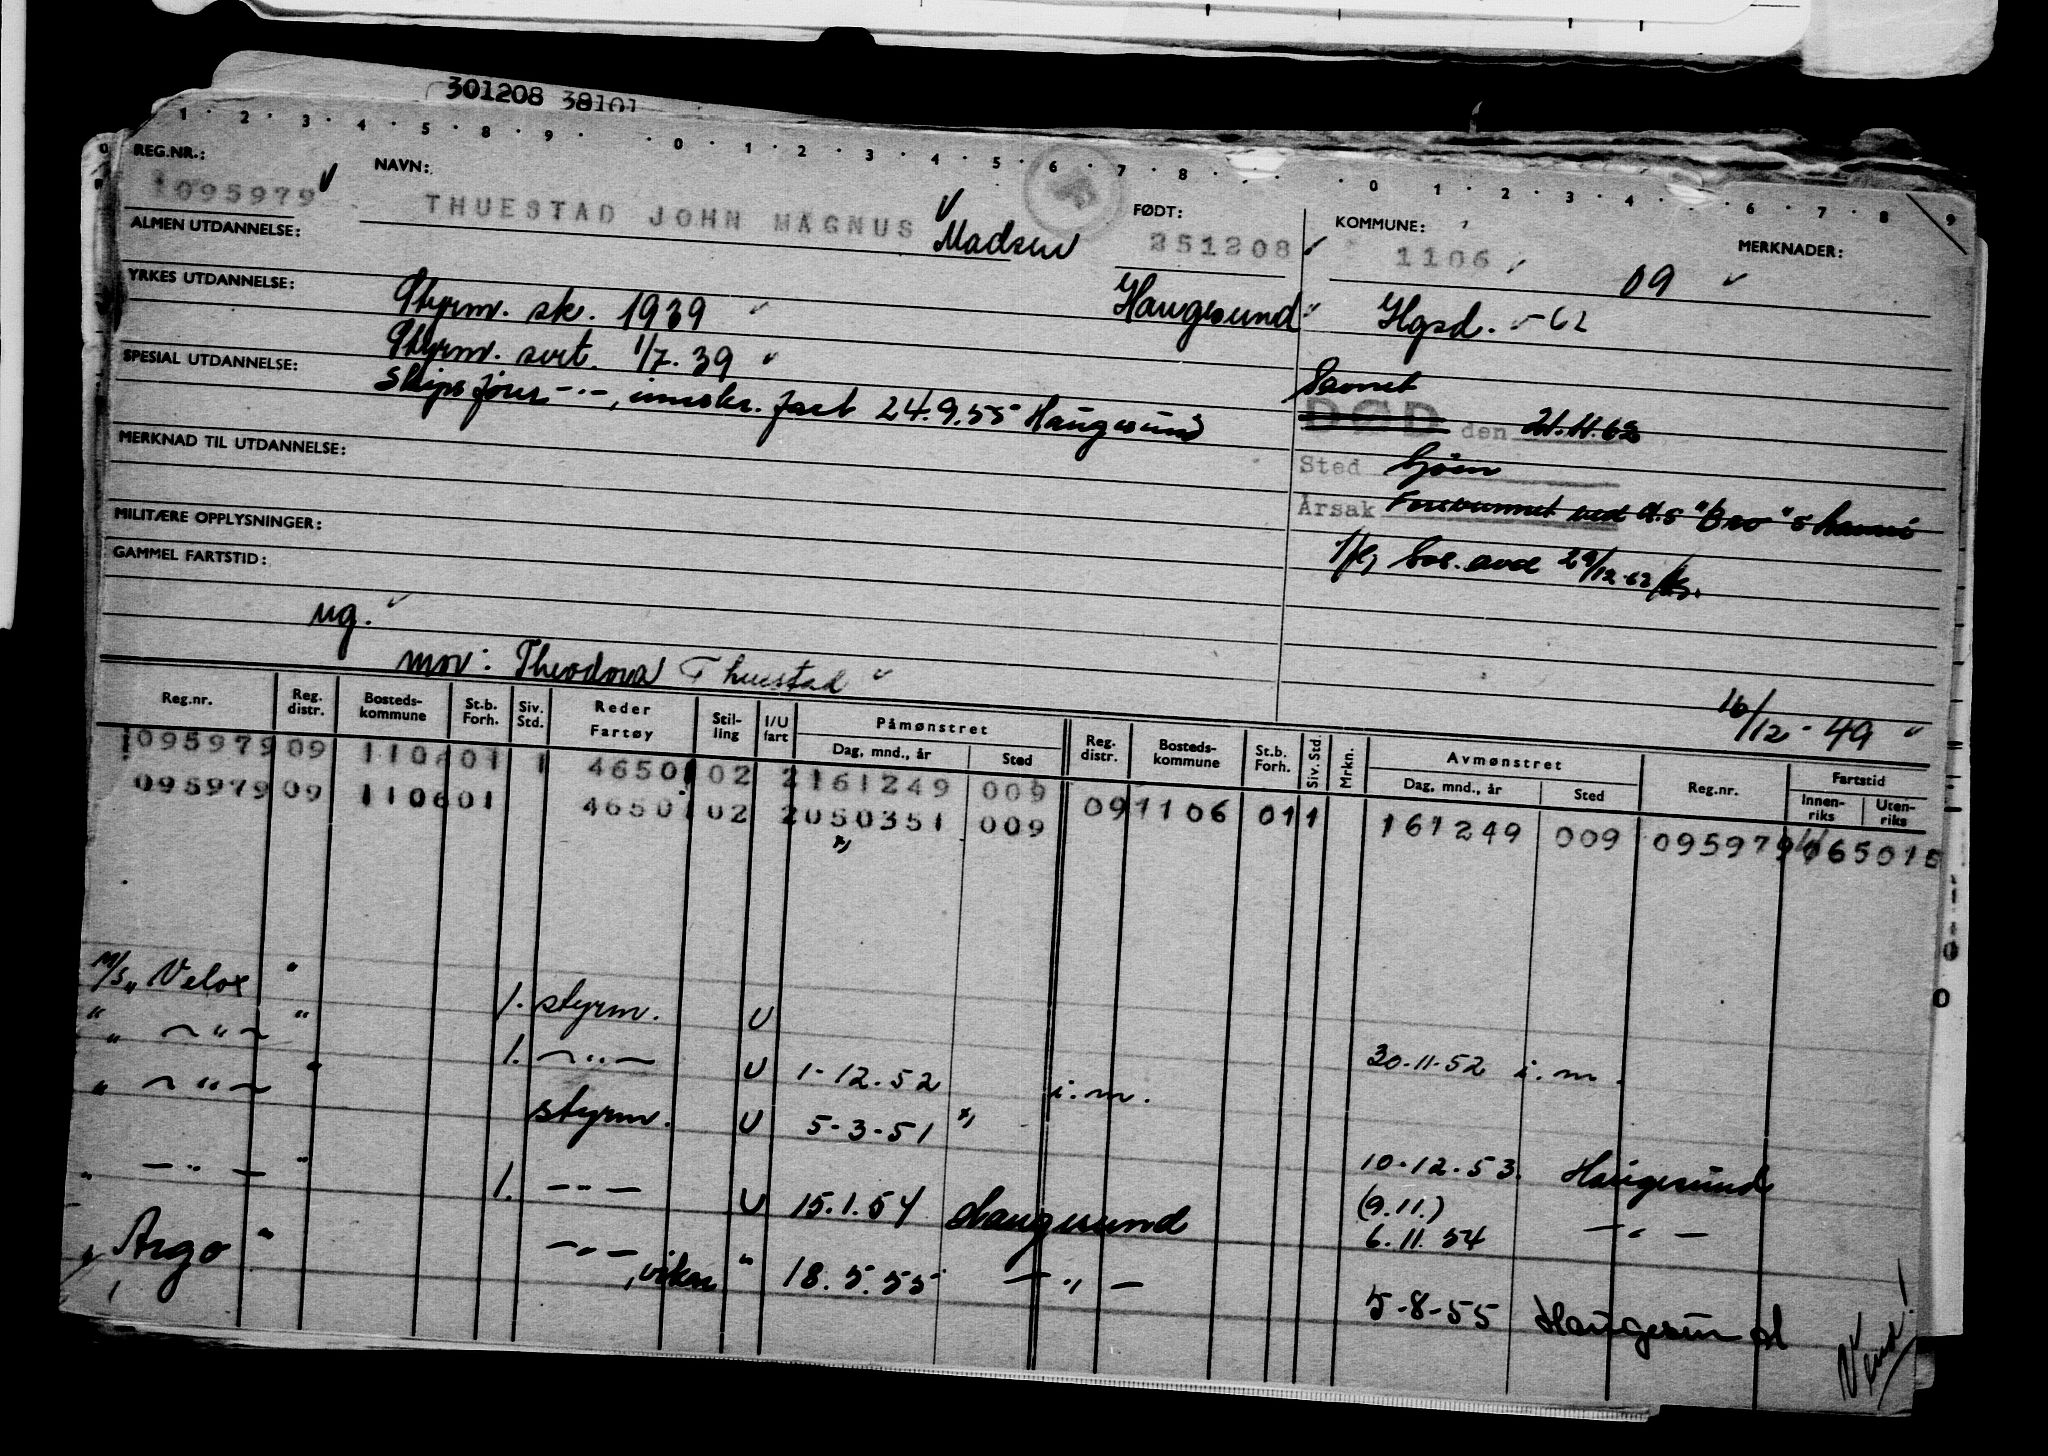 301208 38101
1 · 2 · 3 · 4 · 5 · 8 · 9 · · 0 · 1 · 2 · 3 · 4 · 5 · 6 · 7 · 8 · · · 0 1 · 2 · 3 · 4 · · · 6 · 7 · 8 9
REG.NR.: NAVN: FØDT: KOMMUNE: MERKNADER:
1095979 THUESTAD JOHN MAGNUS Madsen 251208 1106 09
ALMEN UTDANNELSE:
YRKES UTDANNELSE: Styrm. sk. 1939 Haugesund Hgsd. -62
Styrm. sert. 1/7. 39
SPESIAL UTDANNELSE: Skipsfører -"-, innskr. fart 24.9.55 Haugesund
Savnet
DØD den 21.11.62
MERKNAD TIL UTDANNELSE: Sted Sjøen
Årsak Forsvunnet ved d.s "Bro"s havari
MILITÆRE OPPLYSNINGER:
29/12-62
GAMMEL FARTSTID:
ug.
mor: Theodora Thuestad
16/12 - 49
Reg.nr. Reg. distr. Bosteds-kommune St.b. Forh. Siv. Std. Reder Fartøy Stil-ling I/U fart Påmønstret Dag, mnd., år Sted Reg. distr. Bosteds-kommune St.b. Forh. Siv. Std. Mrkn. Avmønstret Dag, mnd., år Sted Reg.nr. Fartstid Innen-riks Uten-riks
1095979 09 1106 01 1 4650 1 02 2 161249 009
095979 09 1106 01 4650 1 02 2 050351 009 09 1106 01 1 161249 009 095979 065015
x)
M/S „Velox" 1. styrm. U 30.11.52 i.m.
" „ -"- " 1. -"- U 1-12.52 i.m.
„ -"- " styrm. U 5-3-51 x) 10-12.53. Haugesund
(9.11.)
„ -"- " 1. -"- U 15.1.54 Haugesund 6.11.54 -"-
„ Argo " -"-, vikar " 18.5.55 -"- 5-8-55 Haugesund
Vend!